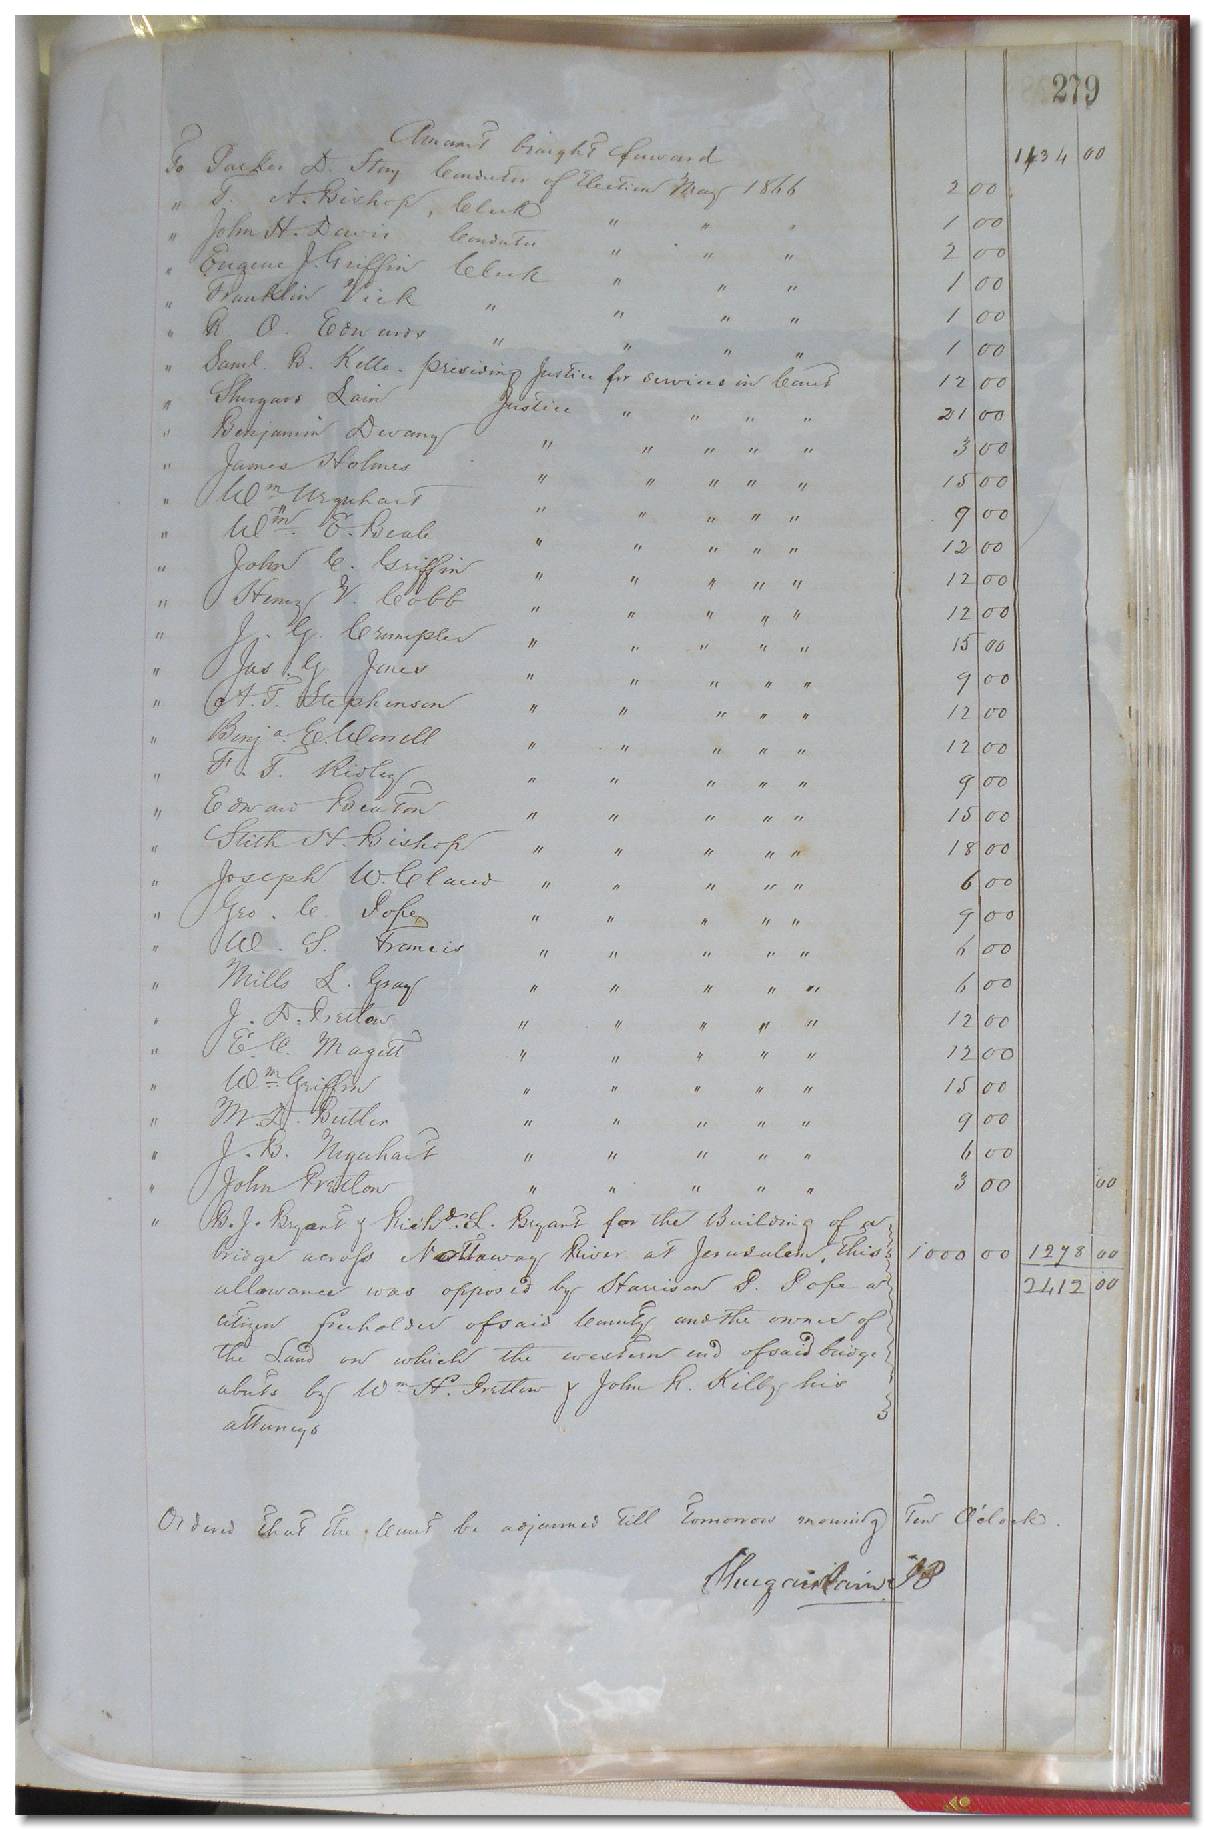 279
Amount brought forward 1434 00
To Parker D. Story Conductor of Election May 1866 2 00
" T. A. Bishop, Clerk " " " 1 00
" John H. Davis Conductor " " " 2 00
" Eugene J. Griffin Clerk " " " 1 00
" Franklin Vick " " " " 1 00
" R O. Edwards " " " " 1 00
" Saml. B. Kello. presiding Justice for services in Court 12 00
" Shugars Lain Justice " " " " 21 00
" Benjamin Devany " " " " " 3 00
" James Holmes " " " " " 15 00
" Wm Urquhart " " " " " 9 00
" Wm. E. Beale " " " " " 12 00
" John C. Griffin " " " " " 12 00
" Henry V. Cobb " " " " " 12 00
" J. G. Crumpler " " " " " 15 00
" Jas. G. Jones " " " " " 9 00
" A. T. Stephenson " " " " " 12 00
" Benja. E. Worrell " " " " " 12 00
" F. T. Ridley " " " " " 9 00
" Edward Beaton " " " " " 15 00
" Stith H. Bishop " " " " " 18 00
" Joseph W. Claud " " " " " 6 00
" Geo. C. Pope " " " " " 9 00
" W. S. Francis " " " " " 6 00
" Mills L. Gray " " " " " 6 00
" J. D. Pretlow " " " " " 12 00
" E. C. Magett " " " " " 12 00
" Wm Griffin " " " " " 15 00
" M. D. Butler " " " " " 9 00
" J. B. Urquhart " " " " " 6 00
" John Pretlow " " " " " 3 00 00
" B. J. Bryant & Richd. L. Bryant for the Building of a
bridge across Nottaway River at Jerusalem, this 1000 00 1278 00
allowance was opposed by Harrison P. Pope a 2412 00
citizen freeholder of said County and the owner of
the Land on which the western end of said bridge
abuts by Wm H. Pretlow & John R. Kilby his
attorneys
Ordered that the Court be adjourned till tomorrow morning Ten O'clock.
Shugars Lain J P